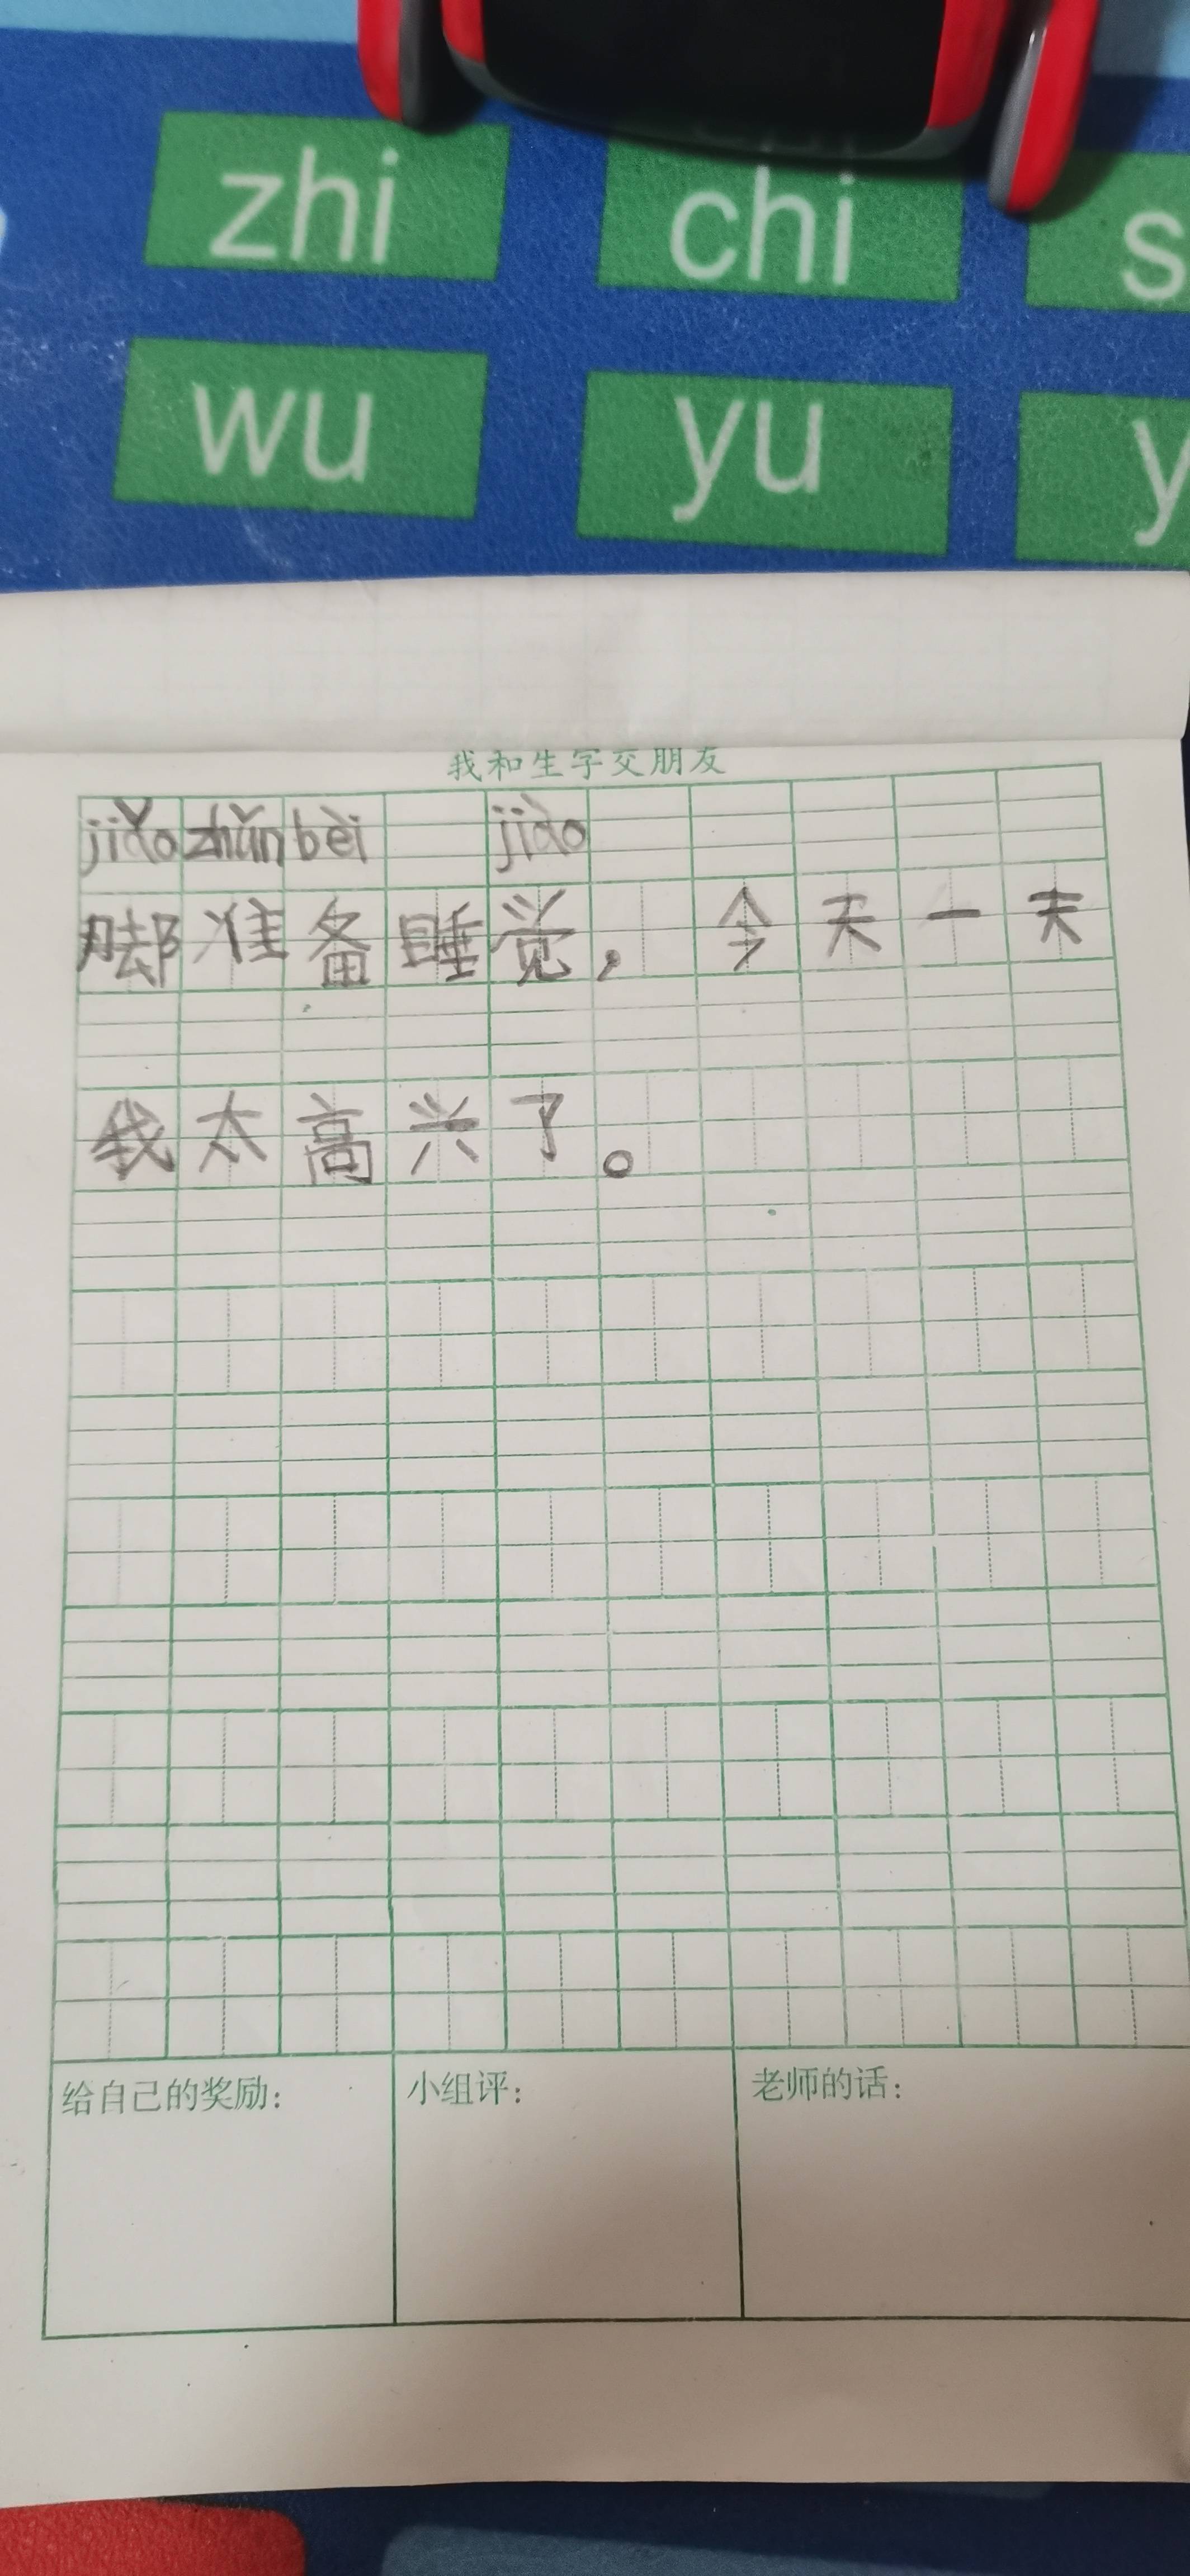 zhi chi s
wu yu y
我和生字交朋友
jiǎo zhǔn bèi jiào
脚准备睡觉，今天一天
我太高兴了。
给自己的奖励： 小组评： 老师的话：